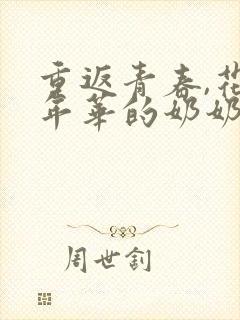 重返青春,花
年华的奶奶
周世钊